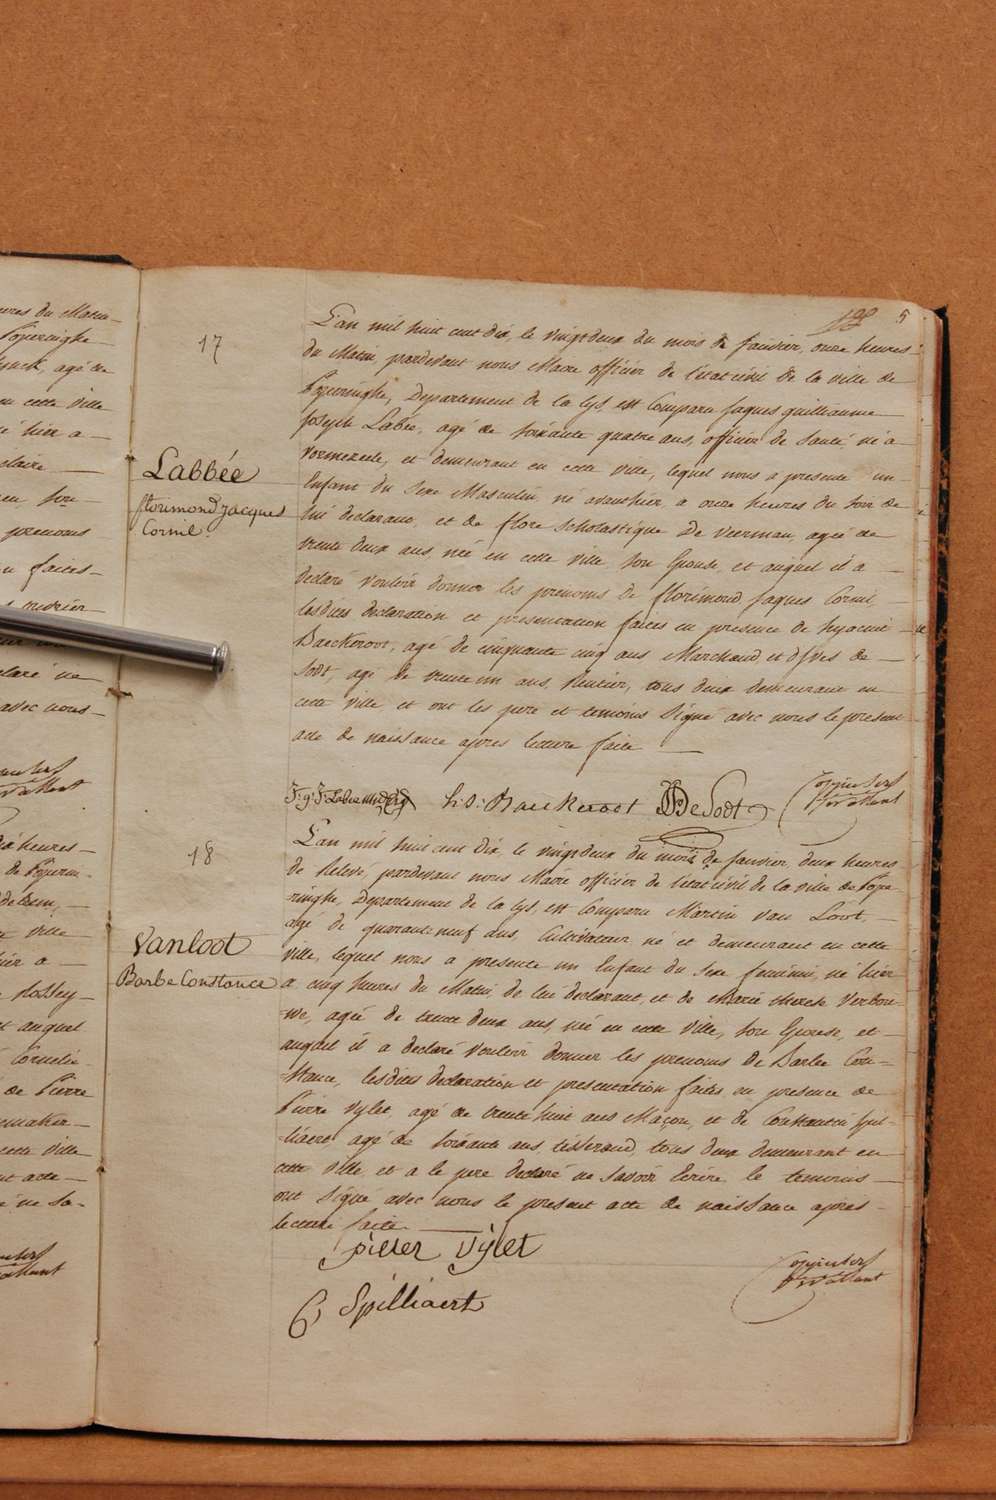 5
17
Labbée
florimond Jacques
Cornil.
L'an mil huit cent dix, le vingt deux du mois de Janvier, onze heures
du Matin, pardevant nous Maire officier de l'état civil de la ville de
Poperinghe, Departement de la Lys, est Comparu Jaques guillaume
Joseph Labée, agé de soixante quatre ans, officier de Santé, né a
Vormezeele, et demeurant en cette ville, lequel nous a presenté un
Enfant du Sexe Masculin, né avanthier, a onze heures du soir de
lui declarant, et de flore Scholastique De Veerman, agée de
trente deux ans, née en cette ville, son Epouse, et auquel il a
declaré vouloir donner les prenoms de florimond Jaques Cornil,
lesdites declaration et presentation faites en presence de hyacint
Baeckeroot, agé de cinquante cinq ans Marchand et d'yves de
Sodt, agé de trente un ans, Rentier, tous deux demeurant en
cette ville, et ont les pere et temoins signé avec nous le present
acte de naissance apres lecture faite
J: g: J: Labée
h: s: Baeckeroot
DeSodt
18
Vanloot
Barbe Constance
L'an mil huit cent dix, le vingt deux du mois de Janvier, deux heures
de Relevé, pardevant nous Maire officier de l'état civil de la ville de Pope-
ringhe, Departement de la Lys, est Comparu Martin Van Loot,
agé de quarante neuf ans Cultivateur, né et demeurant en cette
ville, lequel nous a presenté un Enfant du Sexe feminin, né hier
a cinq heures du Matin, de lui declarant, et de Marie therese Verbou-
we, agée de trente deux ans, née en cette ville, son Epouse, et
auquel il a declaré vouloir donner les prenoms de Barbe Con-
stance, lesdites declaration et presentation faites en presence de
Pierre Vylet, agé de trente huit ans Maçon, et de Constantin Spil-
liaert agé de soixante ans, tisserand, tous deux demeurant en
cette ville et a le pere declaré ne savoir Ecrire, le temoins
ont signé avec nous le present acte de naissance apres
lecture faite.
pieter Vylet
C Spilliaert